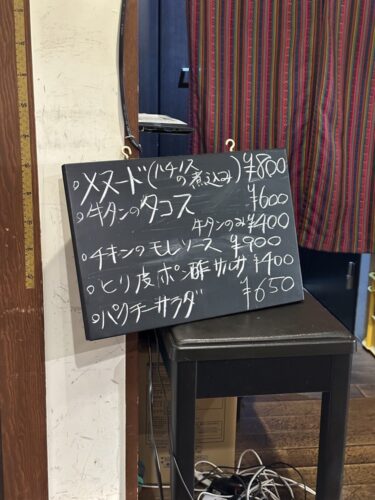 。メヌード(ハチノスの煮込み) ¥800
。牛タンのタコス ¥600
牛タンのみ ¥400
。チキンのモレソース ¥900
。ヒリ皮ポン酢サルサ ¥400
。パクチーサラダ ¥650